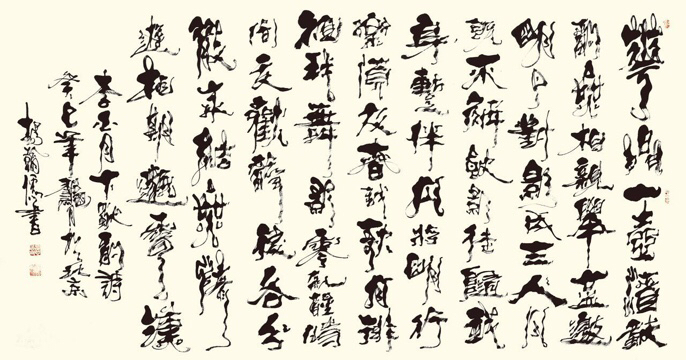 花間一壺酒獨
酌無相親舉杯邀
明月對影成三人月
既不解飲影徒隨我
身暫伴月將影行
樂須及春我歌月徘
徊我舞影零亂醒時
同交歡醉後各分
散永結無情
遊相期邈雲漢
李白月下獨酌詩
癸巳年於北京
楊書